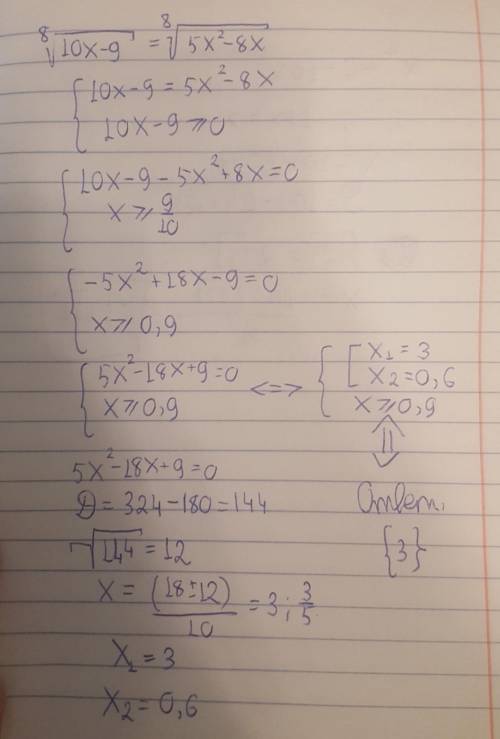 ⁸√(10x-9) = ⁸√(5x²-8x)
{ 10x-9 = 5x²-8x
10x-9 ⩾ 0
{ 10x-9-5x²+8x=0
x ⩾ 9/10
{ -5x²+18x-9=0
x ⩾ 0,9
{ 5x²-18x+9=0
x ⩾ 0,9
<=> { [ x₁ = 3
x₂ = 0,6
x ⩾ 0,9
⇕
Ответ:
{3}
5x²-18x+9=0
D = 324-180=144
√144 = 12
x = (18±12)/10 = 3; 3/5
x₁ = 3
x₂ = 0,6